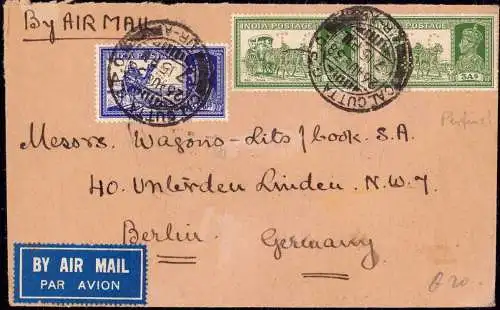 By AIR MAIL
INDIA POSTAGE
INDIA POSTAGE INDIA POSTAGE
3AS
CALCUTTA G.P.O.
Perfined
Messrs. Wagons-Lits / book. S.A.
40. Unterden Linden. N.W.7
Berlin Germany
BY AIR MAIL
PAR AVION
G 20.